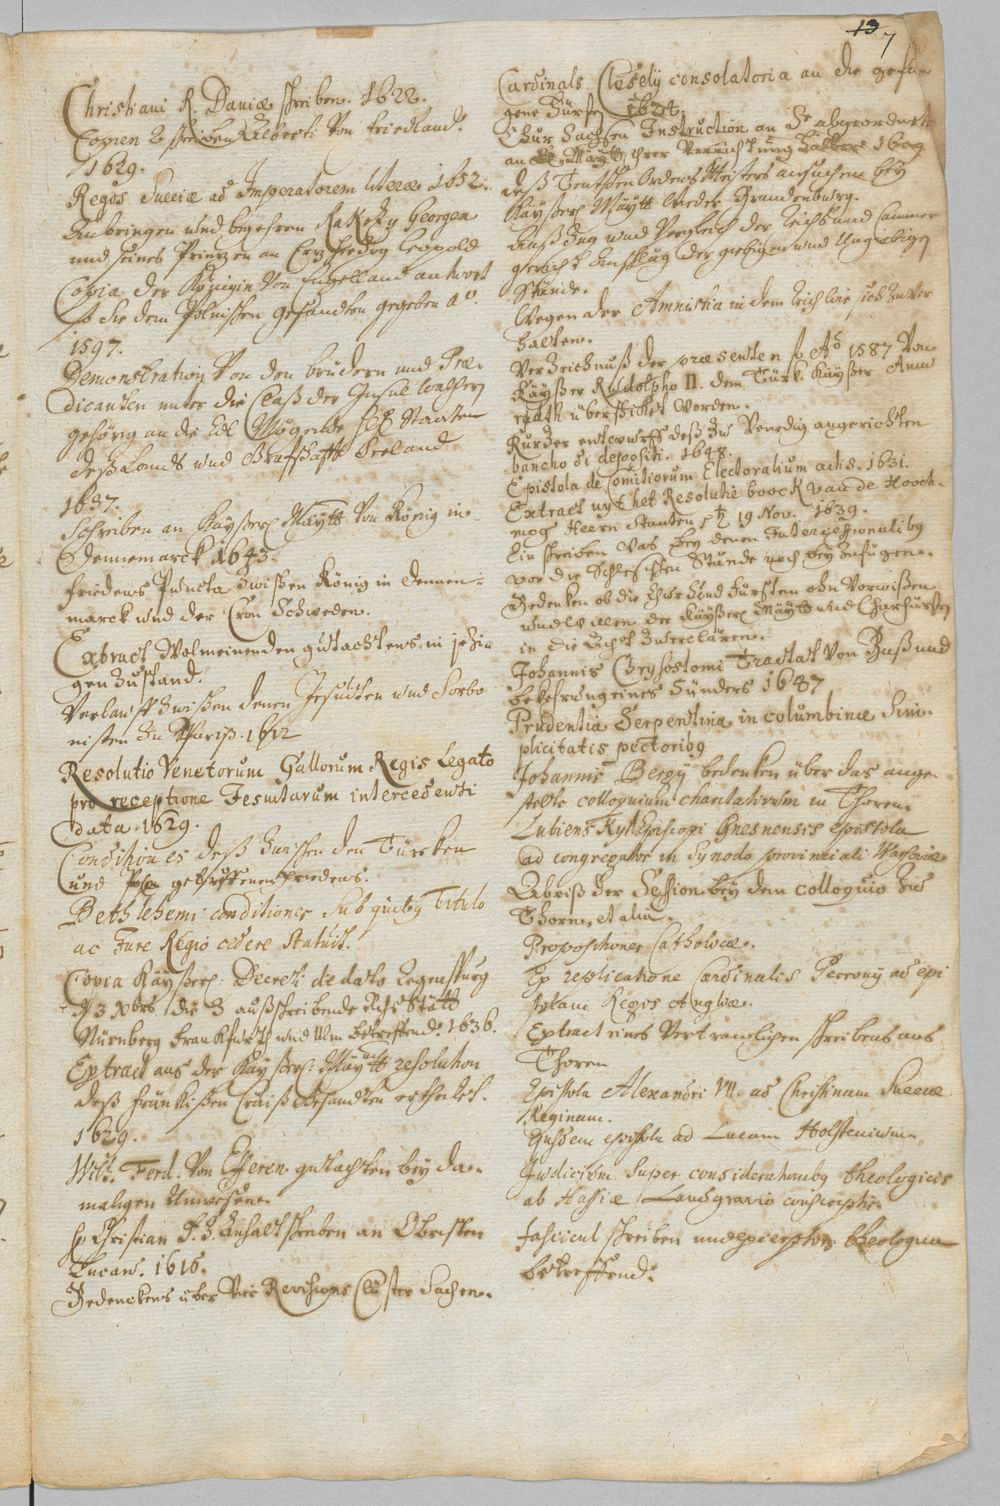 13
7
Christiani R. Daniæ schreiben. 1622.
Copien 2 schreiben Alberti Von Friedland.
1629.
Regis Sueciæ ad Imperatorem literæ 1632.
Anbringen und begehren Rakozy Georgen
und seines Prinzen an Erzherzog Leopold
Copia der Königin Von Engelland antwort
so sie dem Polnischen gesandten gegeben aº.
1597.
Demonstration Von den brüdern und Præ-
dicanten unter die Claß der Insul Walchern
gehörig an die Edl Mögende H. Staaten
deß Lands und Grafschafft Seeland
1637.
Schreiben an Kayßerl. Maytt Von König in
Dennemarck 1643.
Friedens Puncta Zwischen König in Dennen-
marck und der Cron Schweden.
Extract Wolmeinenden gutachtens, in jezi-
gen Zustand.
Verlauff Zwischen denen Jesuiten und Sorbo
nisten Zu Pariß. 1612
Resolutio Venetorum Gallorum Regis Legato
pro receptione Jesuitarum intercedenti
data. 1629.
Conditiones deß Zwischen den Türcken
und getroffenen Friedens.
Bethlehemi conditiones sub quibq Titulo
ac Jure Regio cedere statuit.
Copia Kayßerl. Decreti de dato Regenspurg
23 Xbris die 3 außschreibende Stätt
Nürnberg Franckfurth und Ulm betreffend. 1636.
Extract aus der Kayßerl. Maytt resolution
deß Fränckischen Craiß Gesandten ertheilet.
1629.
Wilh. Ferd. Von Efferen gutachten bey da-
mahligen Unwesen.
Christian F. Z. Anhalt schreiben an Obristen
Lucan. 1616.
Bedenckens über Vier Revisions Clöster Sachen.
Cardinals Cleselÿ consolatoria an die gefan
gene Fürsten 1621.
Chur Sachsen Instruction an Se abgeordnete
an Maytt ihrer Verrichtung halber 1609
deß Teutschen Ordens Meisters ansuchen bey
Kayßerl. Maytt wieder Brandenburg.
und Vergleich der Reichs und Cammer
gericht Anschläg der giebigen und Ungiebigen
Stände.
Wegen der Amnistia in dem Reich wie sichs Zu Ver
halten.
Verzeichnuß der præsenten so Aº 1587 Von
Kayßer Rudolpho II. dem Türk. Kayßer Amu
rath überschicket worden.
Kurzer entwurff deß Zu Venedig angerichten
bancho di depositi. 1648.
Epistola de Comitiorum Electoralium actis. 1631.
Extract uyt het Resolutie boeck van de Hooch-
mog Heern Staaten 19 Nov. 1639.
Ein schreiben Was bey denen Intercessionalibq
vor die Schlesischen Stände noch beyzufügen.
Bedenken ob die Chur und Fürsten ohn Vorwissen
und willen der Kayßerl Maytt und Churfürsten
in die Acht Zu erclären.
Johannis Chrysostomi Tractat Von Buß und
bekehrung eines Sünders 1647
Prudentia Serpentina in columbinæ Sim-
plicitatis pectoribq
Johannis Bergÿ bedenken über das ange-
stelte colloquium charitativum in Thoren.
Lubiensky Episcopi Gnesnensis epistola
ad congregatos in Synodo provinciali Warsoviæ
Abriß der Session bey dem colloquio zu
Thorn, et alia.
Propositiones Catholicæ.
Ex replicatione Cardinalis Perronÿ ad epi
stolam Regis Angliæ.
Extract eines Vertraulichen schreibens aus
Thoren
Epistola Alexandri VII. ad Christinam Sueciæ
Reginam.
Ejusdem epistola ad Lucam Holstenium.
Judicium super considerationibq theologicis
ab Hassiæ Landgravio conscriptis.
Fascicul schreiben und theologica
betreffend.